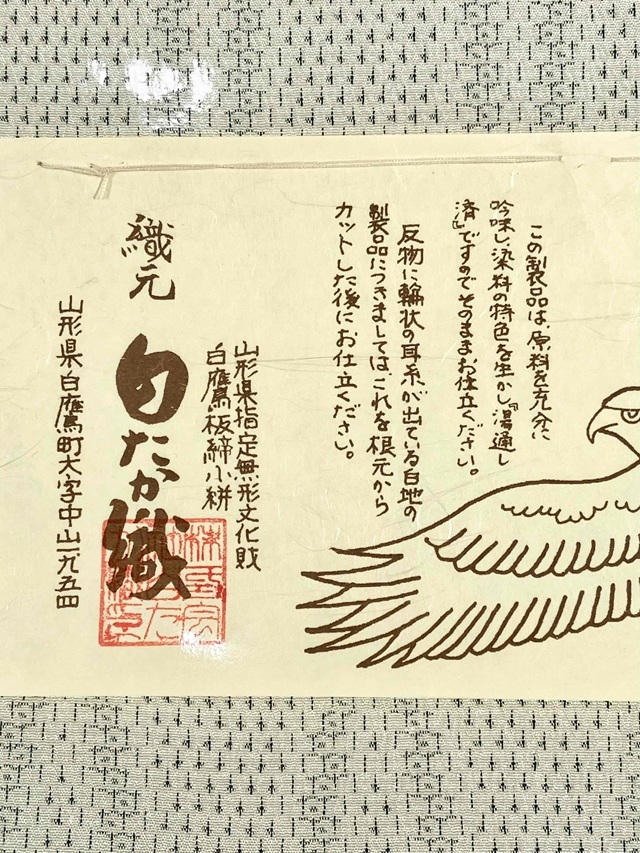 この製品は、原料を充分に
吟味し、染料の特色を生かし『湯通し
済』ですのでそのままお仕立ください。
反物に輪状の耳糸が出ている白地の
製品につきましてはこれを根元から
カットした後にお仕立ください。
山形県指定無形文化財
白鷹板締小絣
織元
白たか織
山形県白鷹町大字中山一九五四